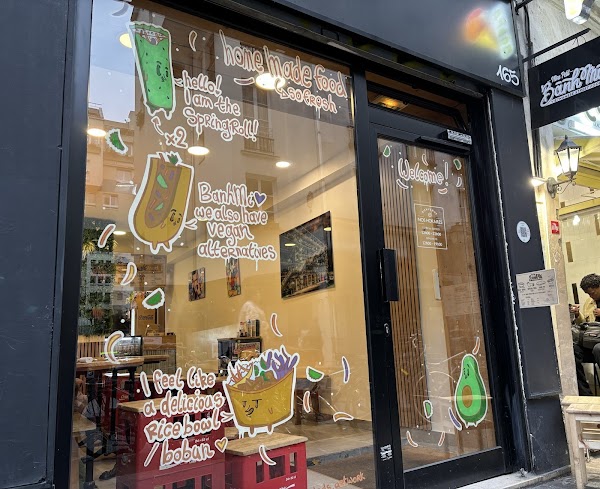 home made food
so fresh
hello!
I am the
Springroll!
x2
BanhMi
we also have
vegan
alternatoies
I feel like
a delicious
Rice bowl
/bobun
Welcome!
NOS HORAIRES
165
Banh Mi